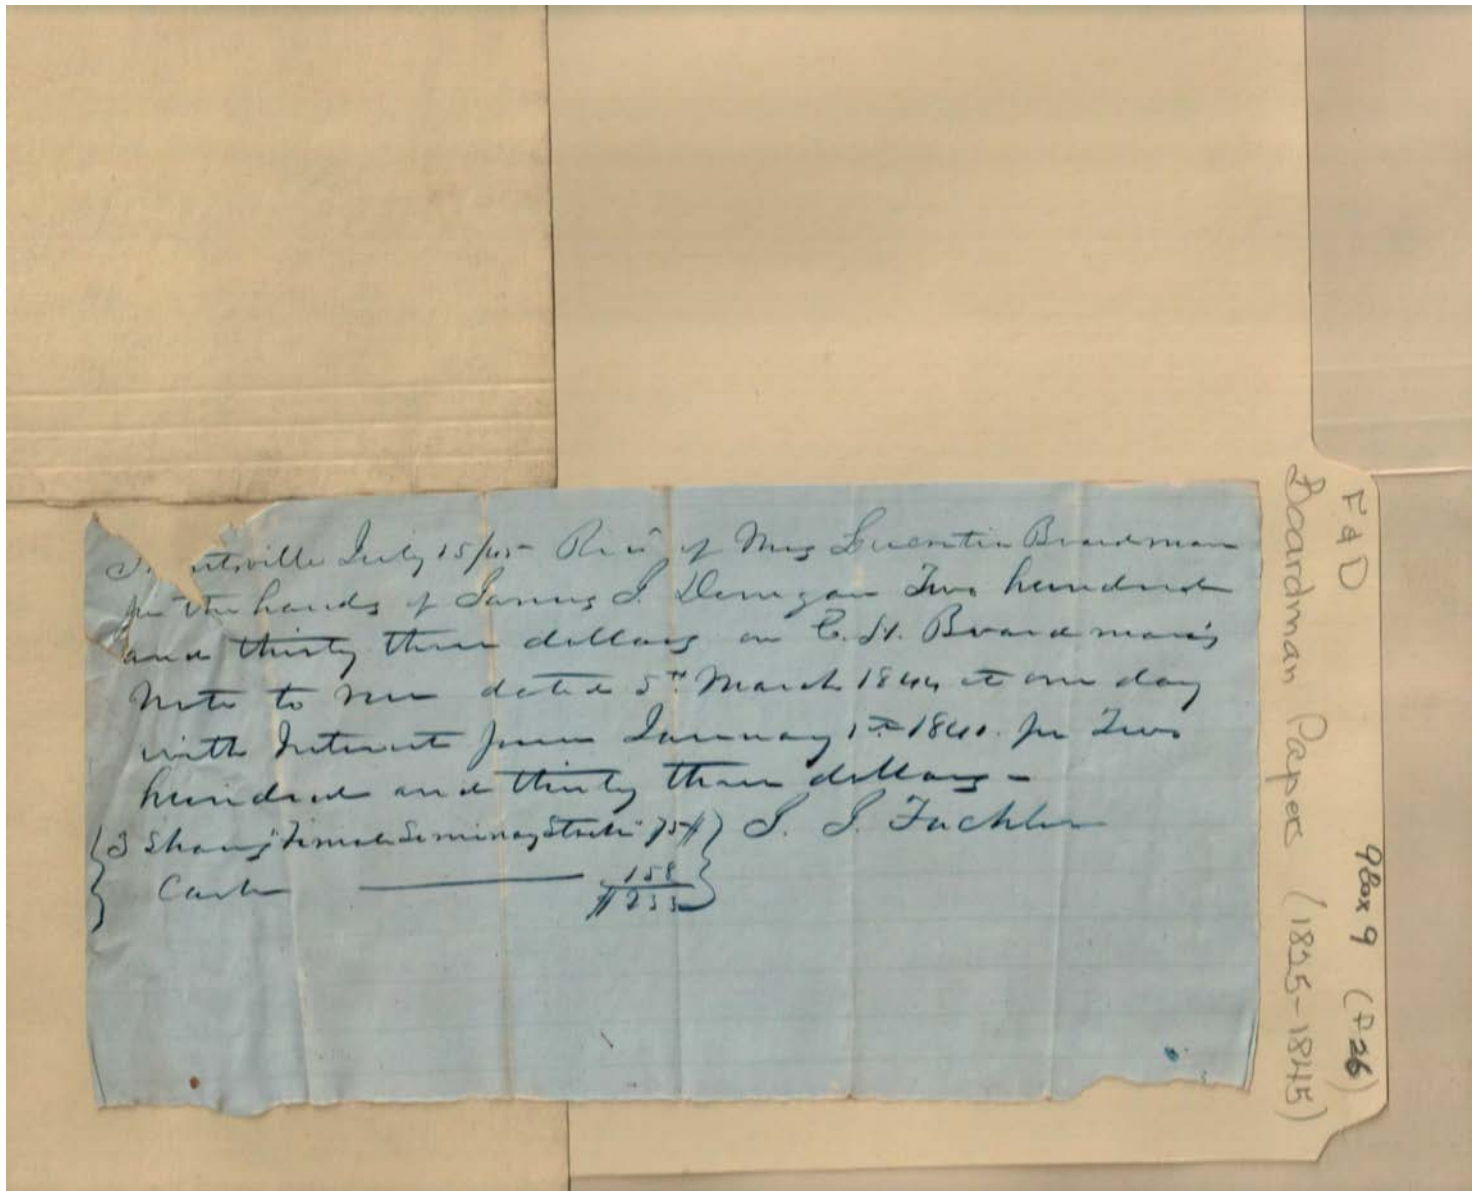 ntsville July 15/45 - Rec'd of Mrs Lucretia Boardman
pr the hands of James J. Donegan Two hundred
and thirty three dollars on C. H. Boardman's
Note to me dated 5th March 1844 at one day
with Interest from January 1st for Two
hundred and thirty three dollars -
3 Shares Female Seminary Stock 75$ J. J. Fackler
Cash 158
$233
F&D
Boardman Papers (1825-1845)
9Box 9 (F26)